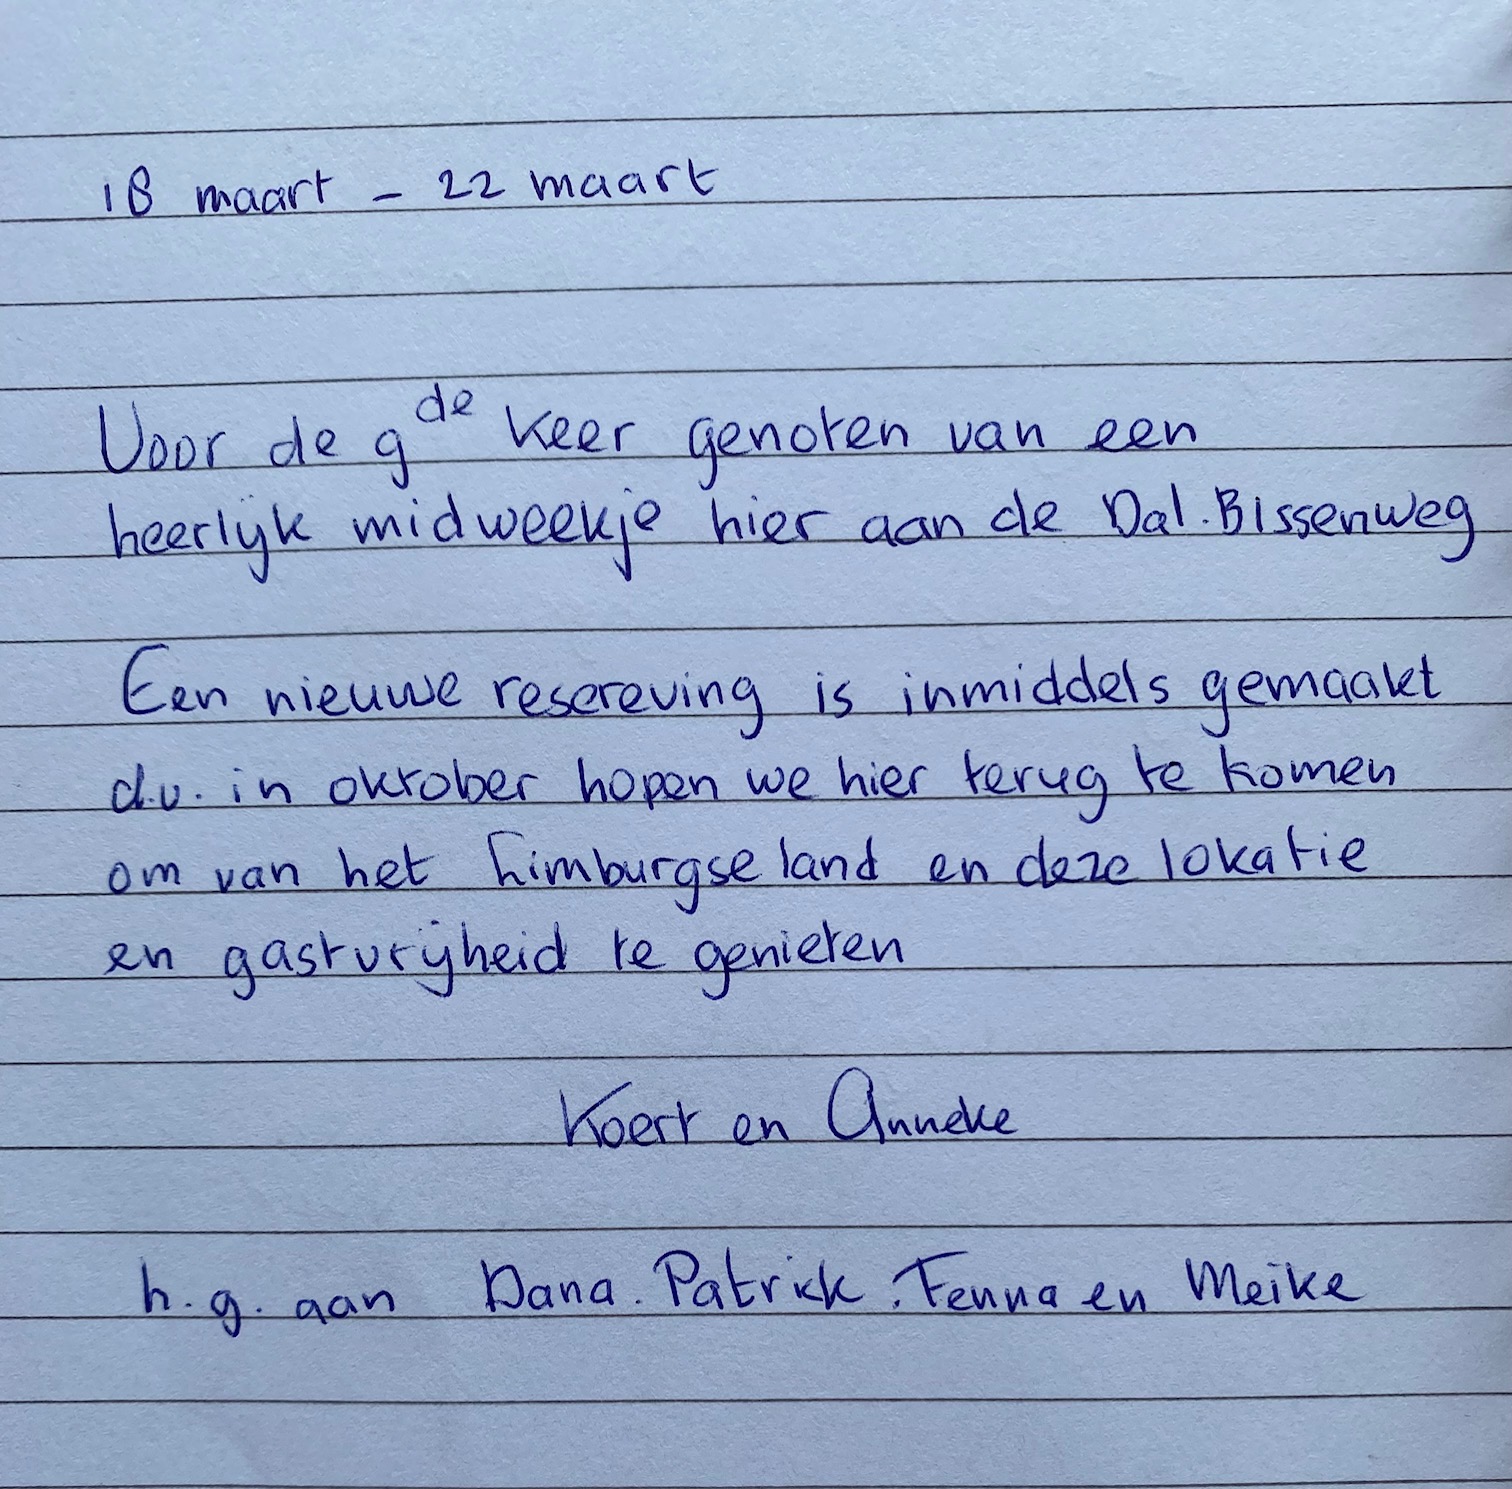 18 maart - 22 maart
Voor de 9de keer genoten van een
heerlijk midweekje hier aan de Dal-Bissenweg
Een nieuwe resereving is inmiddels gemaakt
d.v. in oktober hopen we hier terug te komen
om van het Limburgse land en deze lokatie
en gastvrijheid te genieten
Koert en Anneke
h.g. aan Dana. Patrick. Fenna en Meike